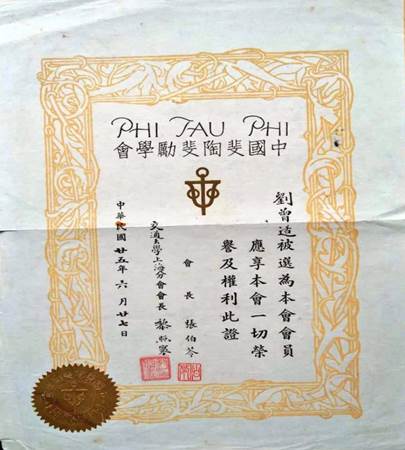 PHI TAU PHI
會學勵斐陶斐國中
劉曾适被選為本會會員
應享本會一切榮
譽及權利此證
會長 張伯苓
交通大學上海分會會長 黎照寰
中華民國廿五年六月廿七日